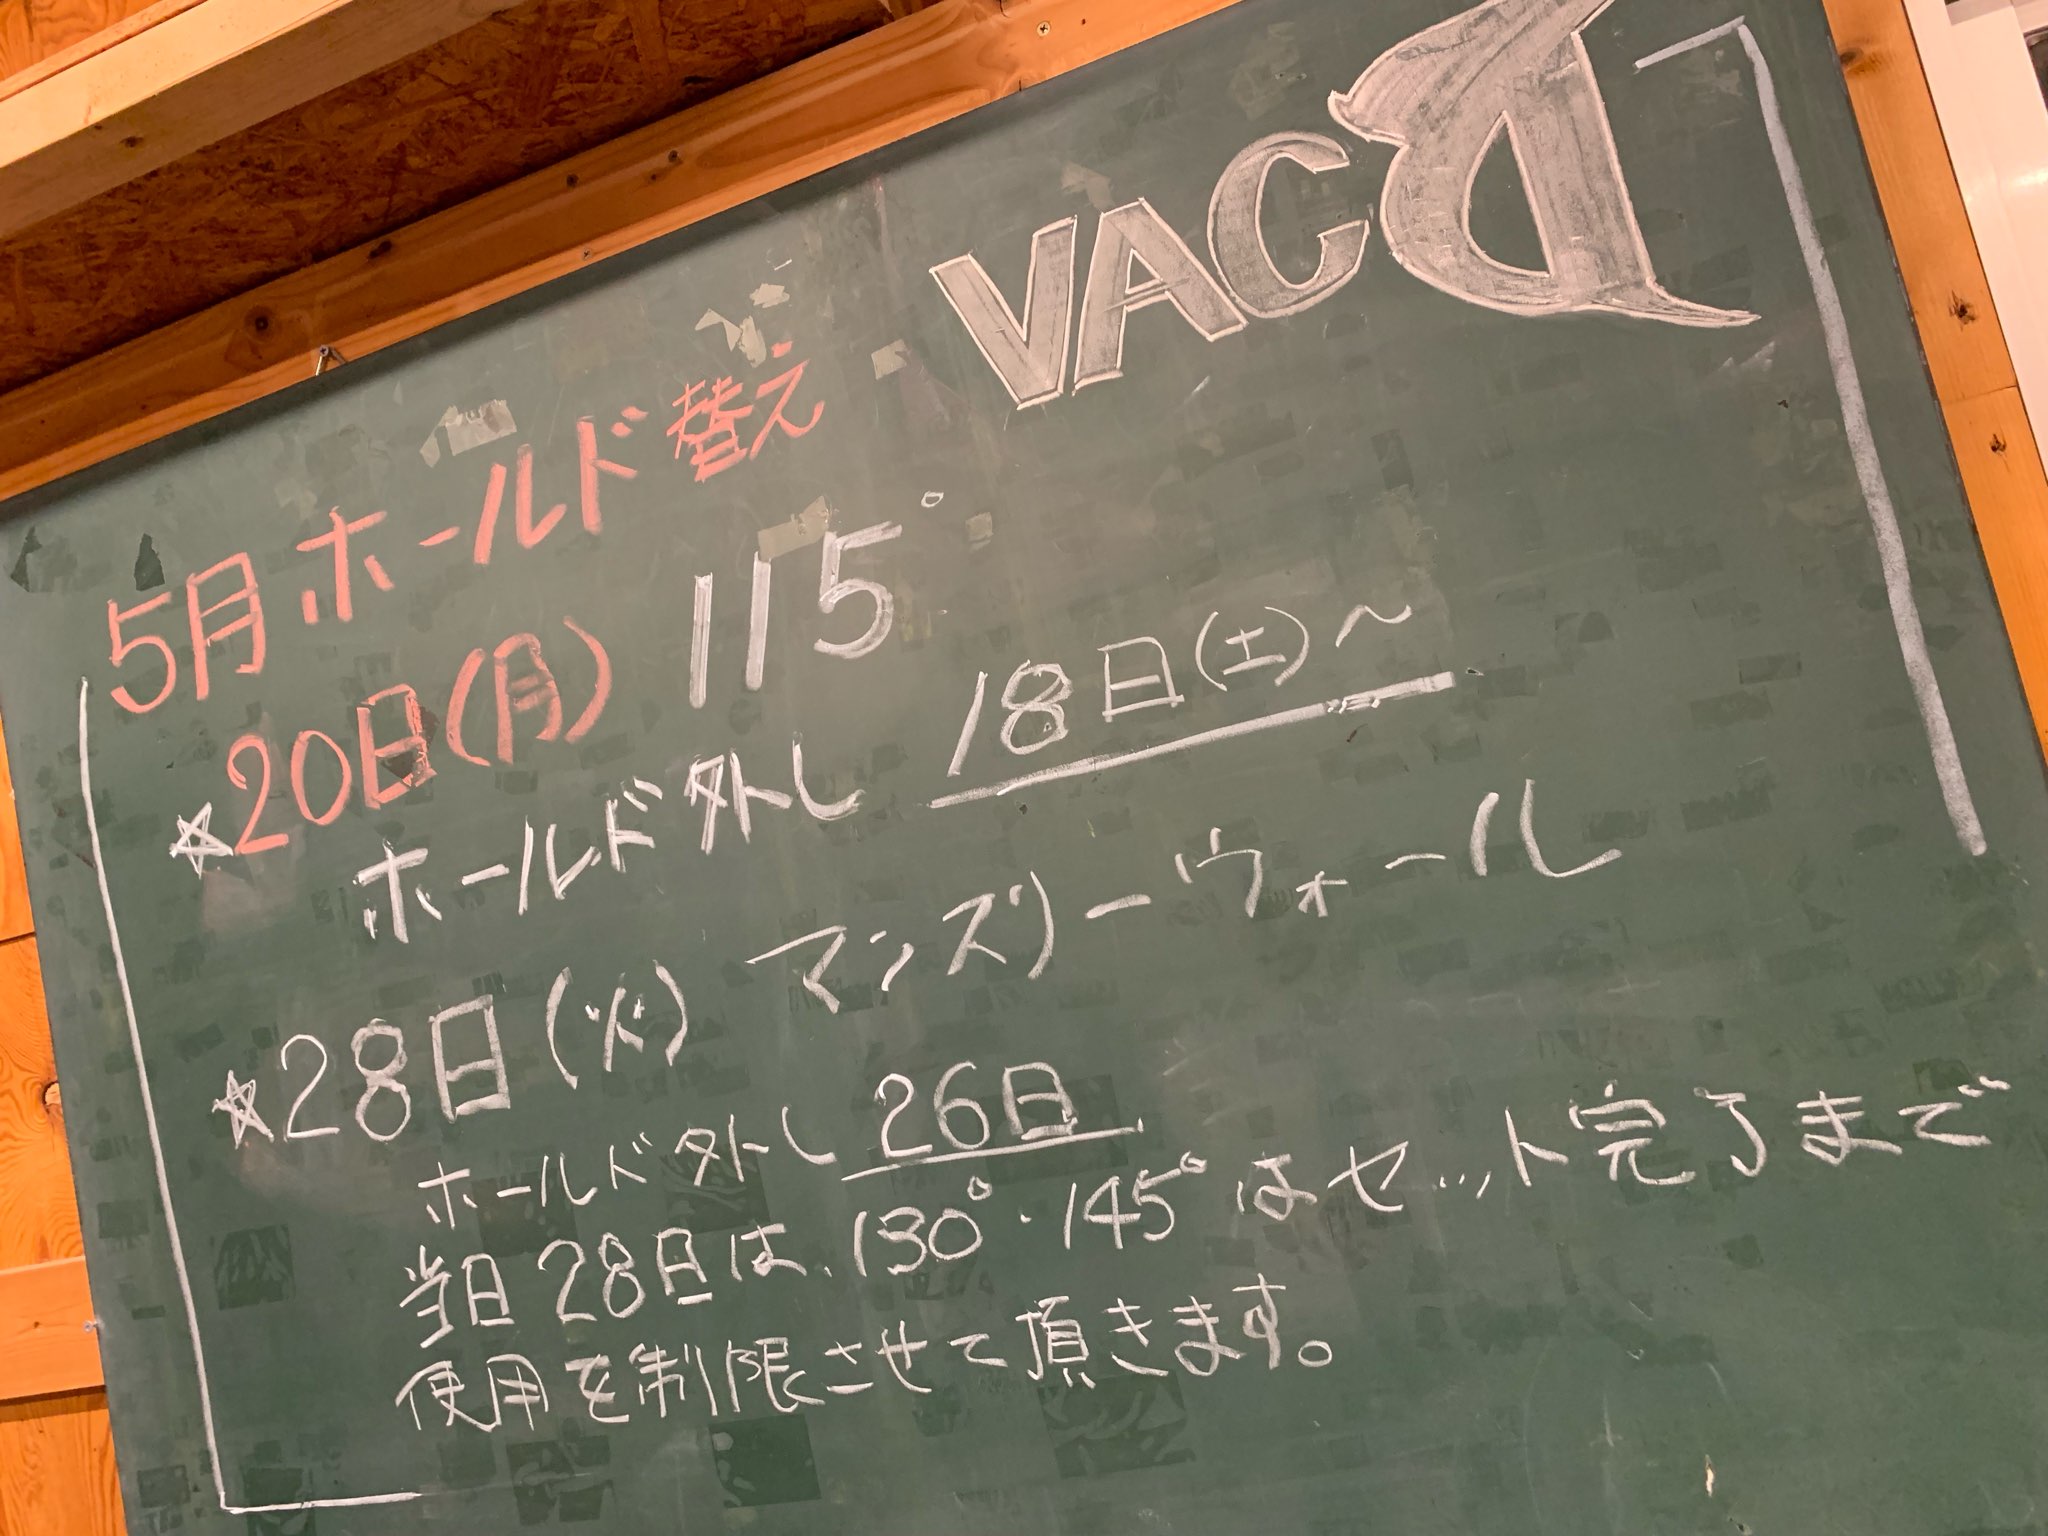 VAC
5月 ホールド替え
☆20日(月) 115°
ホールド外し 18日(土)～
☆28日(火) マンスリーウォール
ホールド外し 26日
当日28日は、130°・145°はセット完了まで
使用を制限させて頂きます。